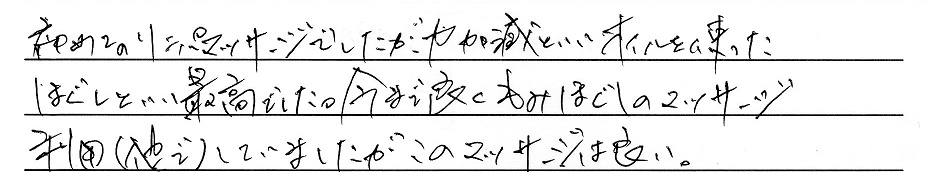 初めてのリンパマッサージでしたが力加減といいオイルを使った
ほぐしといい最高でした。今まで良くもみほぐしのマッサージ
利用(他で)していましたがこのマッサージは良い。